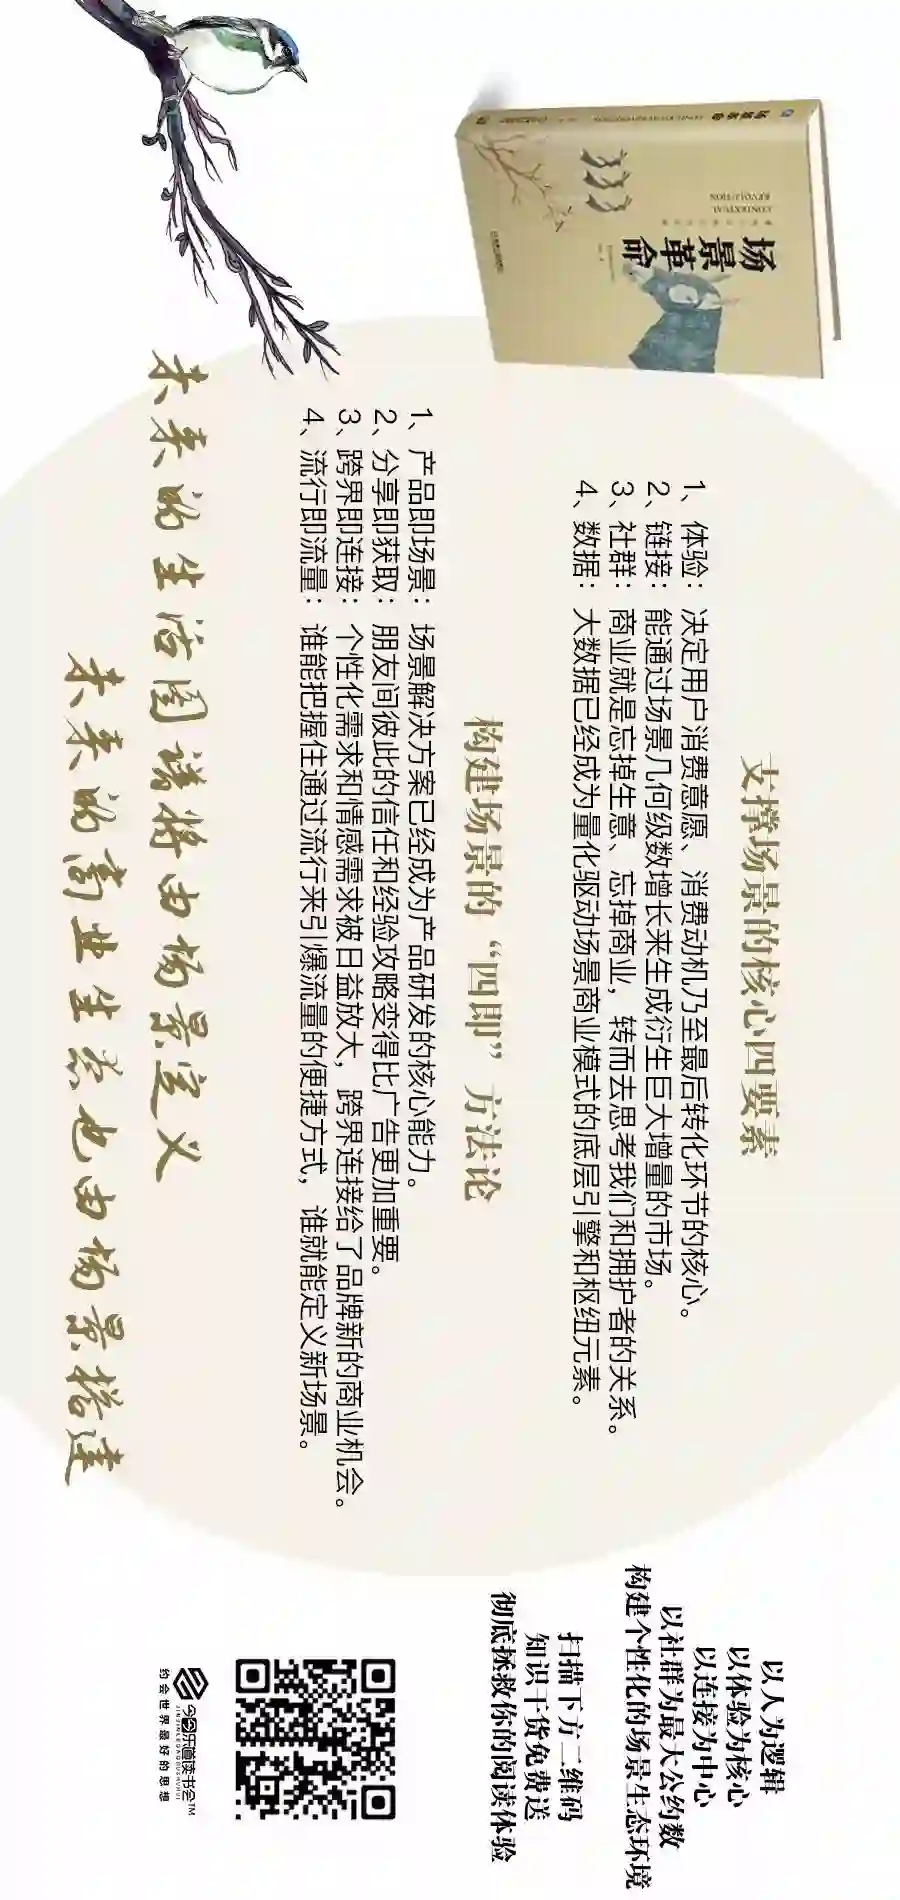 场景革命
CONTEXTUAL
REVOLUTION
支撑场景的核心四要素
1、体验：决定用户消费意愿、消费动机乃至最后转化环节的核心。
2、链接：能通过场景几何级数增长来生成衍生巨大增量的市场。
3、社群：商业就是忘掉生意、忘掉商业，转而去思考我们和拥护者的关系。
4、数据：大数据已经成为量化驱动场景商业模式的底层引擎和枢纽元素。
构建场景的“四即”方法论
1、产品即场景：场景解决方案已经成为产品研发的核心能力。
2、分享即获取：朋友间彼此的信任和经验攻略变得比广告更加重要。
3、跨界即连接：个性化需求和情感需求被日益放大，跨界连接给了品牌新的商业机会。
4、流行即流量：谁能把握住通过流行来引爆流量的便捷方式，谁就能定义新场景。
未来的生活图谱将由场景定义
未来的商业生态也由场景搭建
以人为逻辑
以体验为核心
以连接为中心
以社群为最大公约数
构建个性化的场景生态环境
扫描下方二维码
知识干货免费送
彻底拯救你的阅读体验
今今乐道读书会™
JINJINLEDAODUSHUHUI
约会世界最好的思想